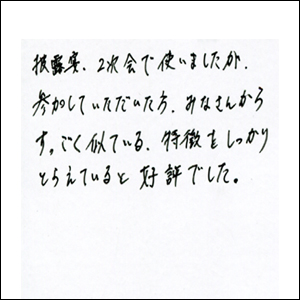 披露宴、2次会で使いましたが、
参加していただいた方、みなさんから
すっごく似ている、特徴をしっかり
とらえていると好評でした。